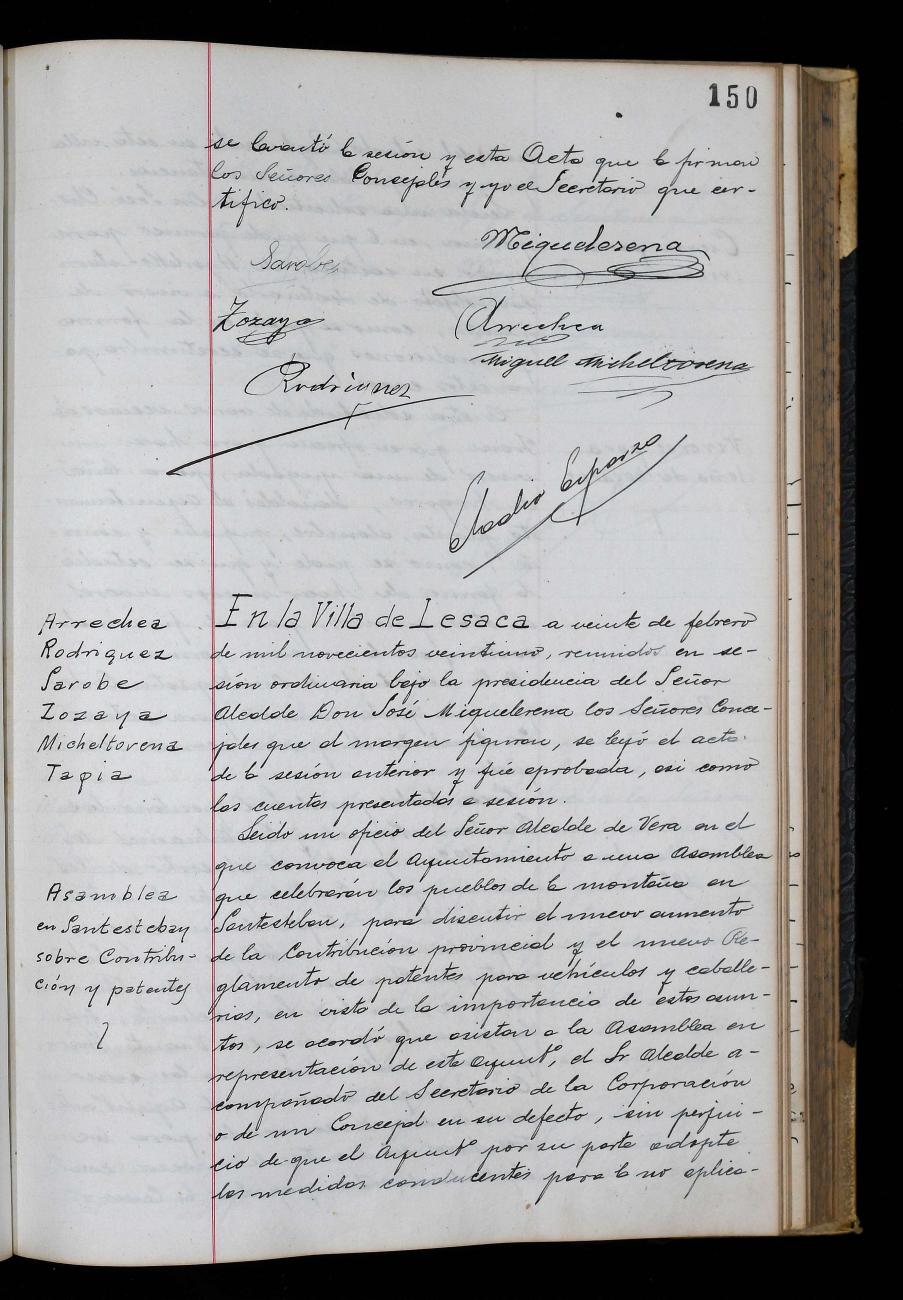 150
se levantó la sesión y esta Acta que la firman
los Señores Concejales y yo el Secretario que cer-
tifico.
Miguelerena
Sarobe
Zozaya
Arrechea
Miguel Micheltorena
Rodriguez
Eladio Esparza
Arrechea
Rodriguez
Sarobe
Zozaya
Micheltorena
Tapia
En la Villa de Lesaca a veinte de febrero
de mil novecientos veintiuno, reunidos en se-
sión ordinaria bajo la presidencia del Señor
Alcalde Don José Miguelerena los Señores Conce-
jales que al margen figuran, se leyó el acta
de la sesión anterior y fué aprobada, asi como
las cuentas presentadas a sesión.
Asamblea
en Santesteban
sobre Contribu-
ción y patentes
Leido un oficio del Señor Alcalde de Vera en el
que convoca al Ayuntamiento a una Asamblea
que celebrarán los pueblos de la montaña en
Santesteban, para discutir el nuevo aumento
de la Contribución provincial y el nuevo Re-
glamento de patentes para vehículos y caballe-
rias, en vista de la importancia de estos asun-
tos, se acordó que asistan a la Asamblea en
representación de este Ayuntº, el Sr Alcalde a-
compañado del Secretario de la Corporación
o de un Concejal en su defecto, sin perjui-
cio de que el Ayuntº por su parte adopte
las medidas conducentes para la no aplica-